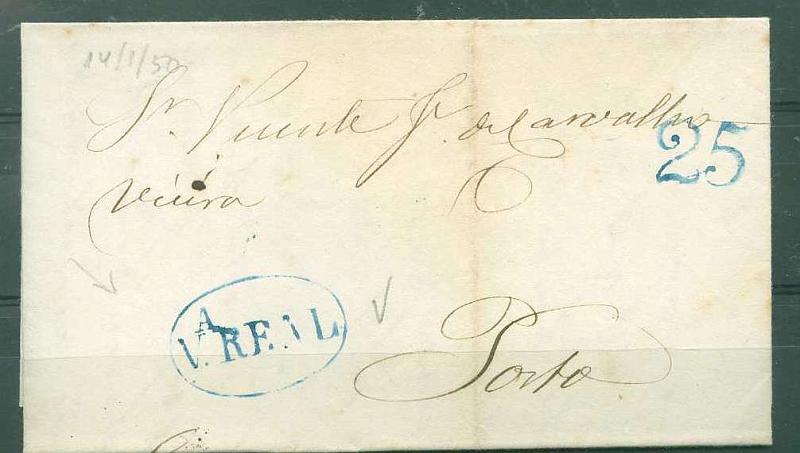 14/1/50
Sr. Vicente Je. de Carvalho
25
Vieira
A
V. REAL
Porto